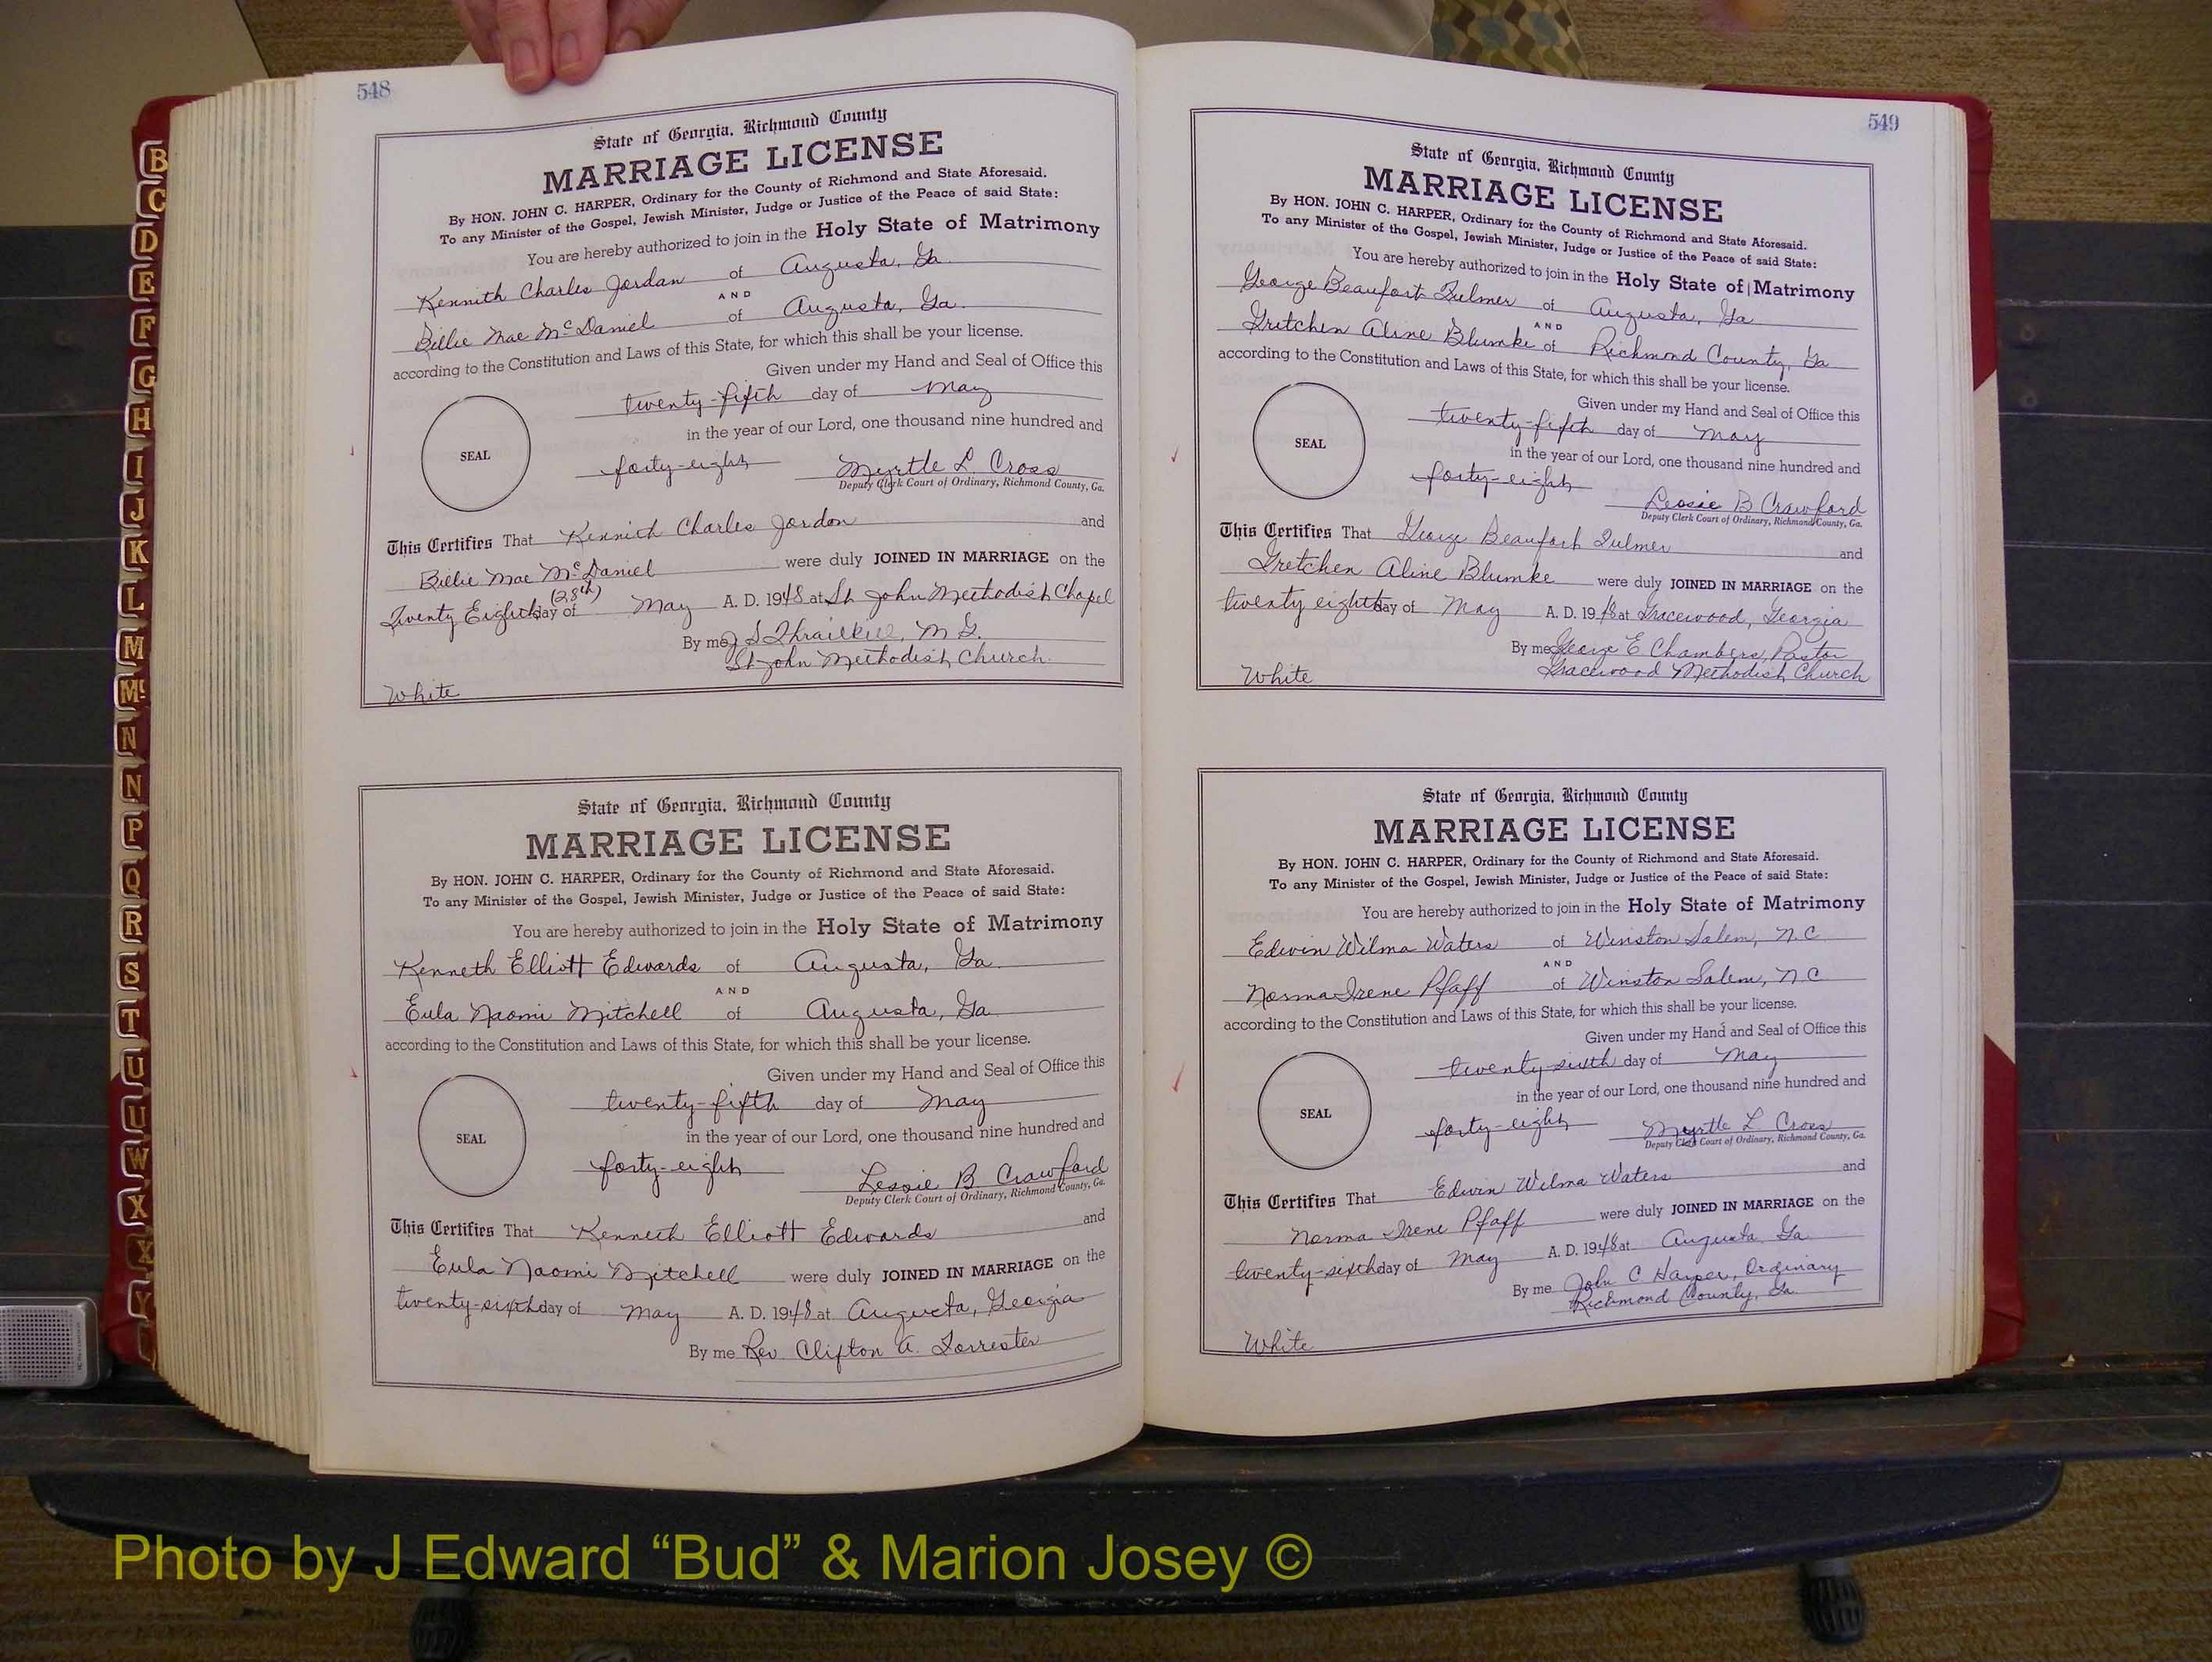 B
C
D
E
F
G
H
I
J
K
L
M
Mc
N
N
P
Q
R
S
T
U
U
W
X
X
Y
548
State of Georgia, Richmond County
MARRIAGE LICENSE
By HON. JOHN C. HARPER, Ordinary for the County of Richmond and State Aforesaid.
To any Minister of the Gospel, Jewish Minister, Judge or Justice of the Peace of said State:
You are hereby authorized to join in the Holy State of Matrimony
Kennith Charles Jordan of Augusta, Ga.
AND
Billie Mae McDaniel of Augusta, Ga.
according to the Constitution and Laws of this State, for which this shall be your license.
Given under my Hand and Seal of Office this
twenty-fifth day of May
in the year of our Lord, one thousand nine hundred and
SEAL
forty-eight Myrtle L. Cross
Deputy Clerk Court of Ordinary, Richmond County, Ga.
This Certifies That Kennith Charles Jordon and
Billie Mae McDaniel were duly JOINED IN MARRIAGE on the
(28th)
Twenty Eighth day of May A. D. 1948 at St John Methodist Chapel
By me J S Thrailkill, M G.
St John Methodist Church.
White
State of Georgia, Richmond County
MARRIAGE LICENSE
By HON. JOHN C. HARPER, Ordinary for the County of Richmond and State Aforesaid.
To any Minister of the Gospel, Jewish Minister, Judge or Justice of the Peace of said State:
You are hereby authorized to join in the Holy State of Matrimony
Kenneth Elliott Edwards of Augusta, Ga.
AND
Eula Naomi Mitchell of Augusta, Ga.
according to the Constitution and Laws of this State, for which this shall be your license.
Given under my Hand and Seal of Office this
twenty-fifth day of May
in the year of our Lord, one thousand nine hundred and
SEAL
forty-eight Lessie B. Crawford
Deputy Clerk Court of Ordinary, Richmond County, Ga.
This Certifies That Kenneth Elliott Edwards and
Eula Naomi Mitchell were duly JOINED IN MARRIAGE on the
twenty-sixth day of May A. D. 1948 at Augusta, Georgia
By me Rev. Clifton A. Forrester
549
State of Georgia, Richmond County
MARRIAGE LICENSE
By HON. JOHN C. HARPER, Ordinary for the County of Richmond and State Aforesaid.
To any Minister of the Gospel, Jewish Minister, Judge or Justice of the Peace of said State:
You are hereby authorized to join in the Holy State of Matrimony
George Beaufort Fulmer of Augusta, Ga
AND
Gretchen Aline Blumke of Richmond County, Ga
according to the Constitution and Laws of this State, for which this shall be your license.
Given under my Hand and Seal of Office this
twenty-fifth day of May
in the year of our Lord, one thousand nine hundred and
SEAL
forty-eight
Lessie B Crawford
Deputy Clerk Court of Ordinary, Richmond County, Ga.
This Certifies That George Beaufort Fulmer and
Gretchen Aline Blumke were duly JOINED IN MARRIAGE on the
twenty eighth day of May A. D. 1948 at Gracewood, Georgia
By me George E Chambers, Pastor
Gracewood Methodist Church
White
State of Georgia, Richmond County
MARRIAGE LICENSE
By HON. JOHN C. HARPER, Ordinary for the County of Richmond and State Aforesaid.
To any Minister of the Gospel, Jewish Minister, Judge or Justice of the Peace of said State:
You are hereby authorized to join in the Holy State of Matrimony
Edwin Wilma Waters of Winston Salem, N.C.
AND
Norma Irene Pfaff of Winston Salem, N.C
according to the Constitution and Laws of this State, for which this shall be your license.
Given under my Hand and Seal of Office this
twenty-sixth day of May
in the year of our Lord, one thousand nine hundred and
SEAL
forty-eight Myrtle L. Cross
Deputy Clerk Court of Ordinary, Richmond County, Ga.
This Certifies That Edwin Wilma Waters and
Norma Irene Pfaff were duly JOINED IN MARRIAGE on the
twenty-sixth day of May A. D. 1948 at Augusta, Ga
By me John C. Harper, Ordinary
Richmond County, Ga.
White
Photo by J Edward “Bud” & Marion Josey ©